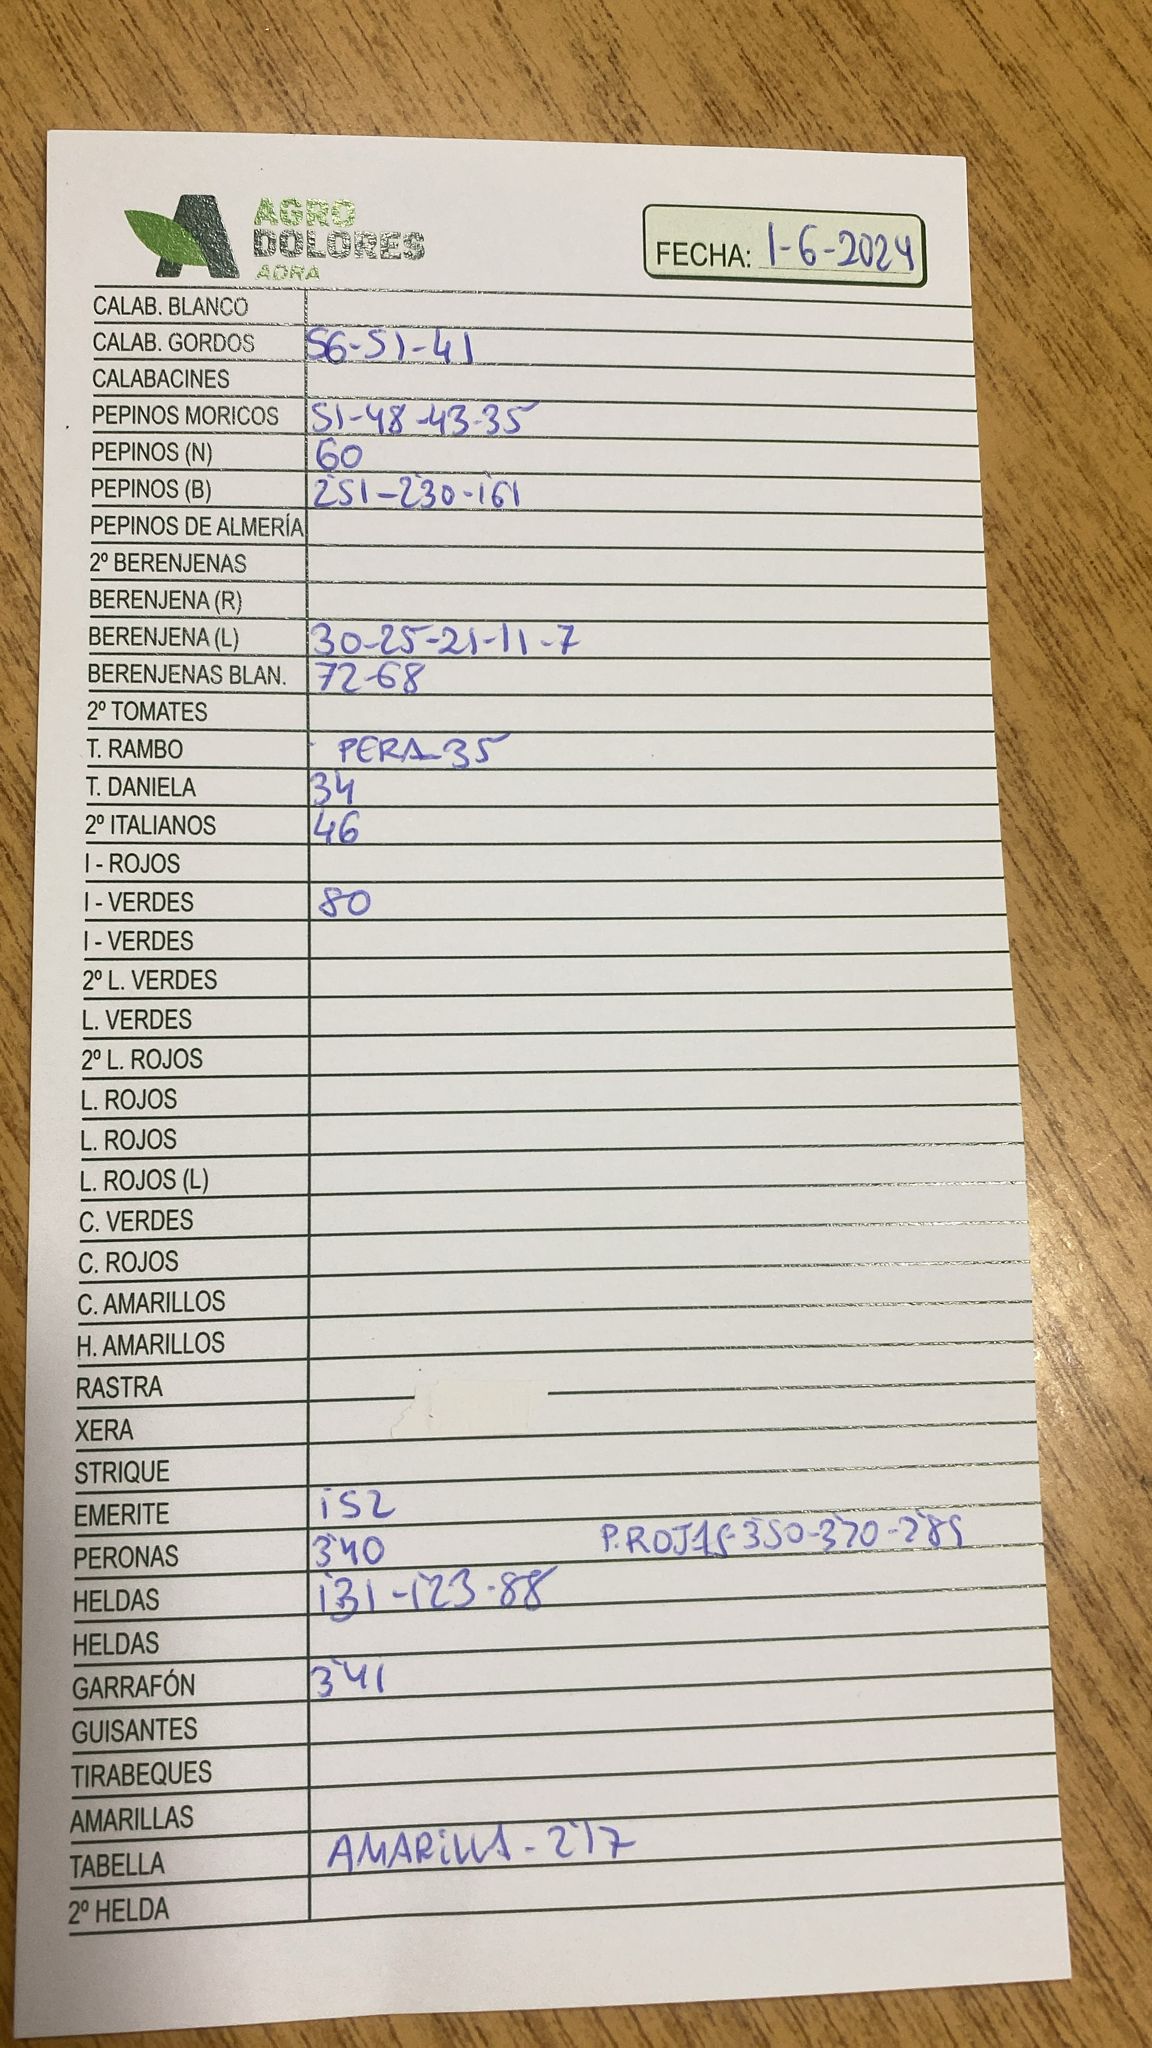 AGRO
DOLORES
ADRA
FECHA: 1-6-2024
CALAB. BLANCO
CALAB. GORDOS 56-51-41
CALABACINES
PEPINOS MORICOS 51-48-43-35
PEPINOS (N) 60
PEPINOS (B) 2'51-2'30-1'61
PEPINOS DE ALMERÍA
2º BERENJENAS
BERENJENA (R)
BERENJENA (L) 30-25-21-11-7
BERENJENAS BLAN. 72-68
2º TOMATES
T. RAMBO PERA-35
T. DANIELA 34
2º ITALIANOS 46
I - ROJOS
I - VERDES 80
I - VERDES
2º L. VERDES
L. VERDES
2º L. ROJOS
L. ROJOS
L. ROJOS
L. ROJOS (L)
C. VERDES
C. ROJOS
C. AMARILLOS
H. AMARILLOS
RASTRA
XERA
STRIQUE
EMERITE 1'52
PERONAS 3'40 P.ROJAS-3'50-3'20-2'85
HELDAS 1'31-1'23-88
HELDAS
GARRAFÓN 3'41
GUISANTES
TIRABEQUES
AMARILLAS
TABELLA AMARILLA-2'17
2º HELDA